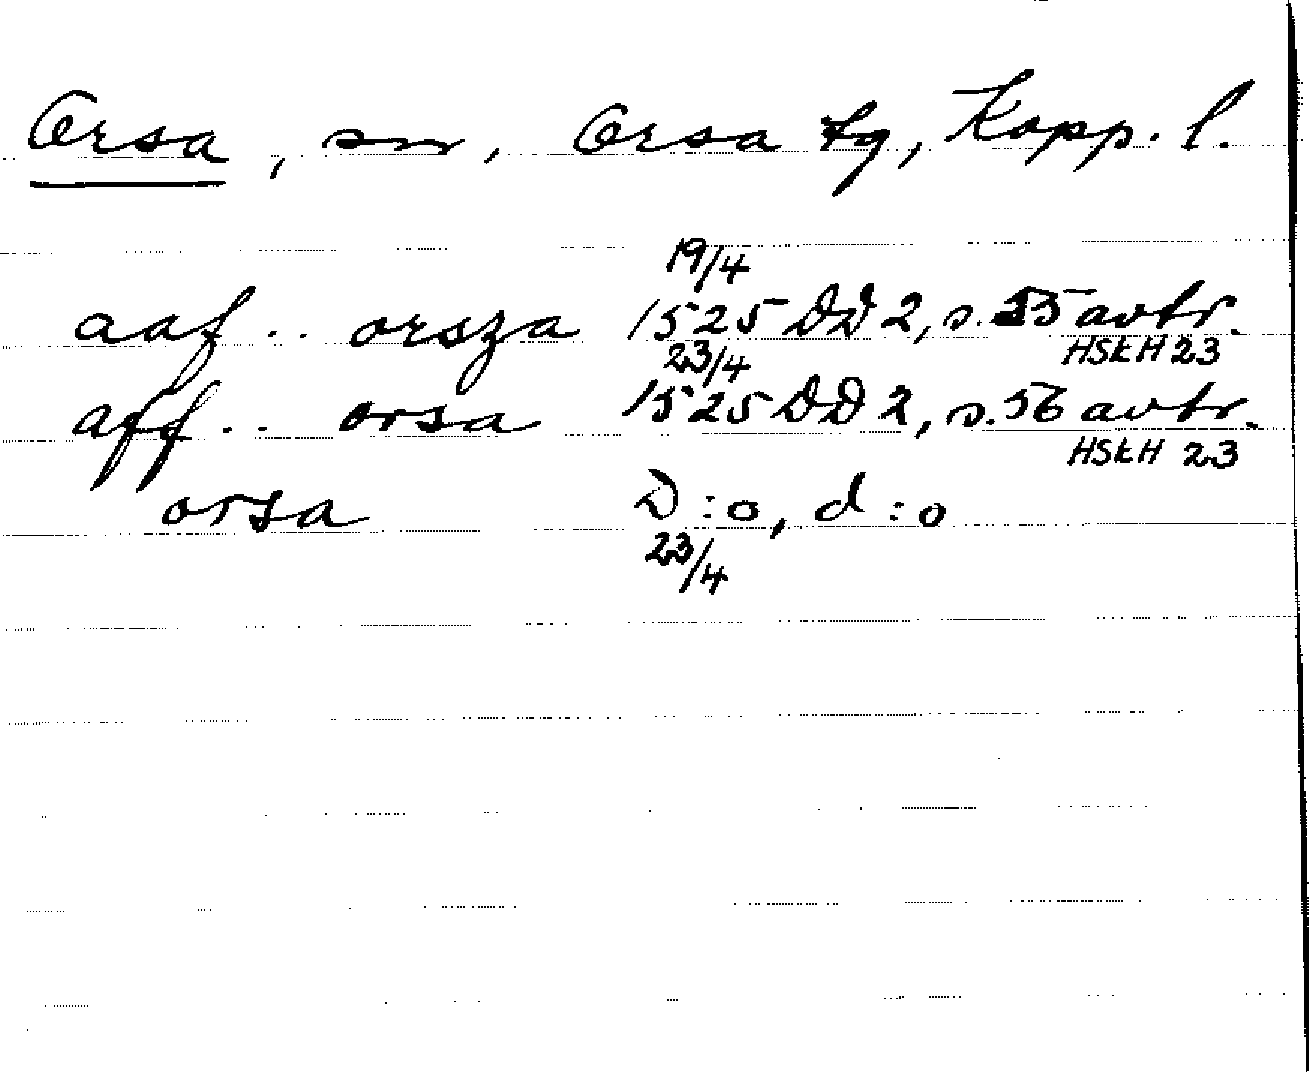 Orsa, sn, Orsa tg, Kopp. l.
19/4
aaf .. orsza 1525 DD 2, s. 55 avtr.
HSkH 23
23/4
aff .. orsa 1525 DD 2, s. 56 avtr.
HSkH 23
orsa D:o, d:o
23/4